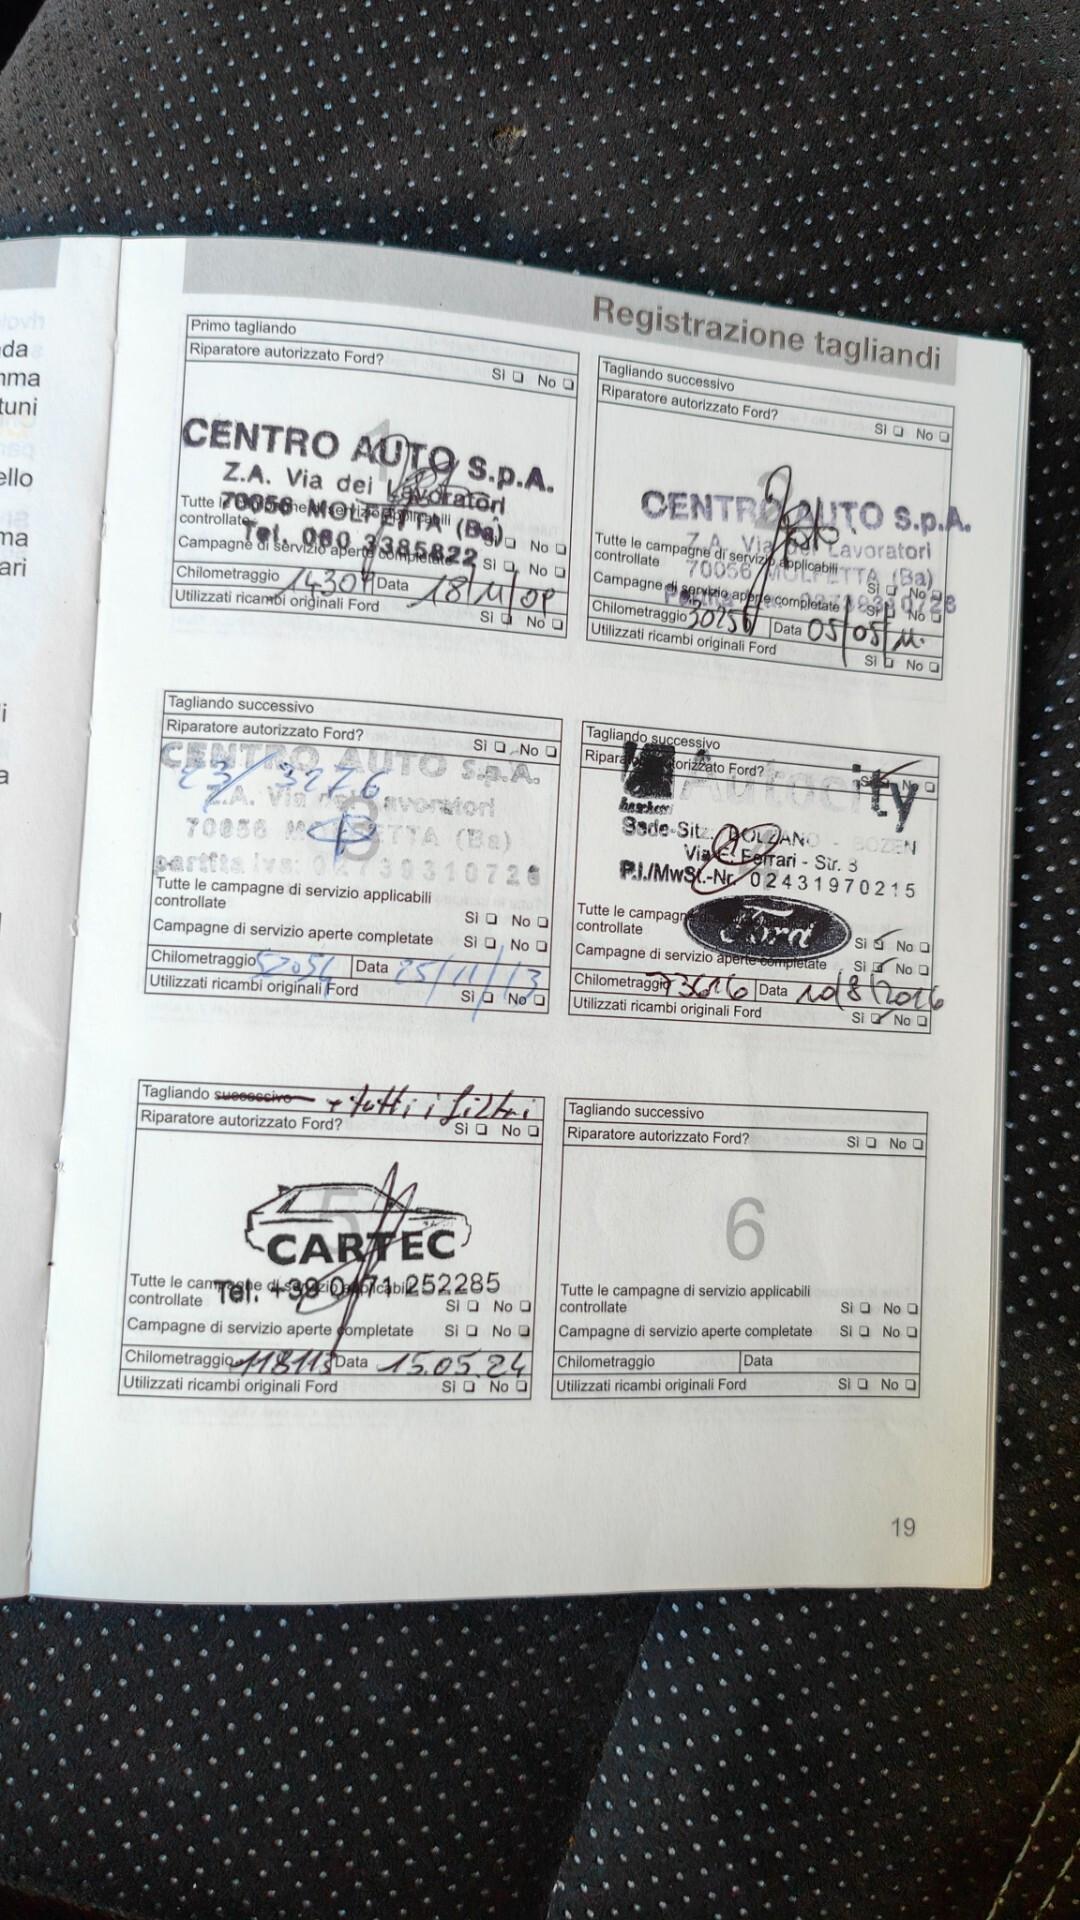 da
nma
tuni
ello
ma
ari
i
a
Registrazione tagliandi
Primo tagliando
Riparatore autorizzato Ford?
Sì ❏ No ❏
1
CENTRO AUTO S.p.A.
Z.A. Via dei Lavoratori
70056 MOLFETTA (Ba)
Tel. 080 3385822
Tutte le campagne di servizio applicabili
controllate Sì ❏ No ❏
Campagne di servizio aperte completate Sì ❏ No ❏
Chilometraggio 14307 Data 18/11/09
Utilizzati ricambi originali Ford Sì ❏ No ❏
Tagliando successivo
Riparatore autorizzato Ford?
Sì ❏ No ❏
2
CENTRO AUTO S.p.A.
Z.A. Via dei Lavoratori
70056 MOLFETTA (Ba)
Tutte le campagne di servizio applicabili
controllate Sì ❏ No ❏
Campagne di servizio aperte completate Sì ❏ No ❏
Chilometraggio 30256 Data 05/05/11
Utilizzati ricambi originali Ford Sì ❏ No ❏
Tagliando successivo
Riparatore autorizzato Ford?
Sì ❏ No ❏
3
CENTRO AUTO S.p.A.
23/3276
Z.A. Via dei Lavoratori
70056 MOLFETTA (Ba)
partita iva: 02739310726
Tutte le campagne di servizio applicabili
controllate Sì ❏ No ❏
Campagne di servizio aperte completate Sì ❏ No ❏
Chilometraggio 52056 Data 25/11/13
Utilizzati ricambi originali Ford Sì ❏ No ❏
Tagliando successivo
Riparatore autorizzato Ford? Sì ❏ No ❏
Autocity
Sede-Sitz: BOLZANO - BOZEN
Via E. Ferrari - Str. 3
P.I./MwSt.-Nr. 02431970215
Ford
Tutte le campagne di servizio applicabili
controllate Sì ❏ No ❏
Campagne di servizio aperte completate Sì ❏ No ❏
Chilometraggio 73616 Data 10/8/2016
Utilizzati ricambi originali Ford Sì ❏ No ❏
Tagliando successivo + tutti i filtri
Riparatore autorizzato Ford? Sì ❏ No ❏
5
CARTEC
Tel. +39 0471 252285
Tutte le campagne di servizio applicabili
controllate Sì ❏ No ❏
Campagne di servizio aperte completate Sì ❏ No ❏
Chilometraggio 118113 Data 15.05.24
Utilizzati ricambi originali Ford Sì ❏ No ❏
Tagliando successivo
Riparatore autorizzato Ford? Sì ❏ No ❏
6
Tutte le campagne di servizio applicabili
controllate Sì ❏ No ❏
Campagne di servizio aperte completate Sì ❏ No ❏
Chilometraggio Data
Utilizzati ricambi originali Ford Sì ❏ No ❏
19